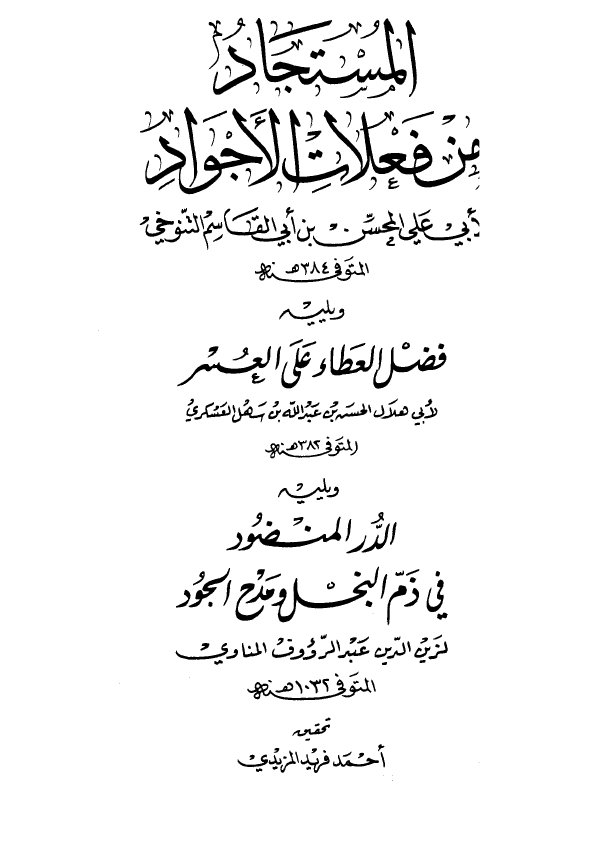 المُسْتَجَادُ
مِنْ فَعْلَاتِ الأَجْوَادِ
لأبي علي المحسّن بن أبي القاسم التنّوخيّ
المتوفى ٣٨٤هـ سنة
ويليه
فَضْلُ العَطَاءِ عَلَى العُسْرِ
لأبي هلال الحسن بن عبد الله بن سَهْل العَسْكريُ
المتوفى ٣٨٢هـ سنة
ويليه
الدُّر المنْضُود
في ذَمّ البُخْل ومَدْح الجُود
لزين الدين عَبْد الرّؤوف المناوي
المتوفى ١٠٣٢هـ سنة
تحقيق
أحْمَد فريْد المزيْدي